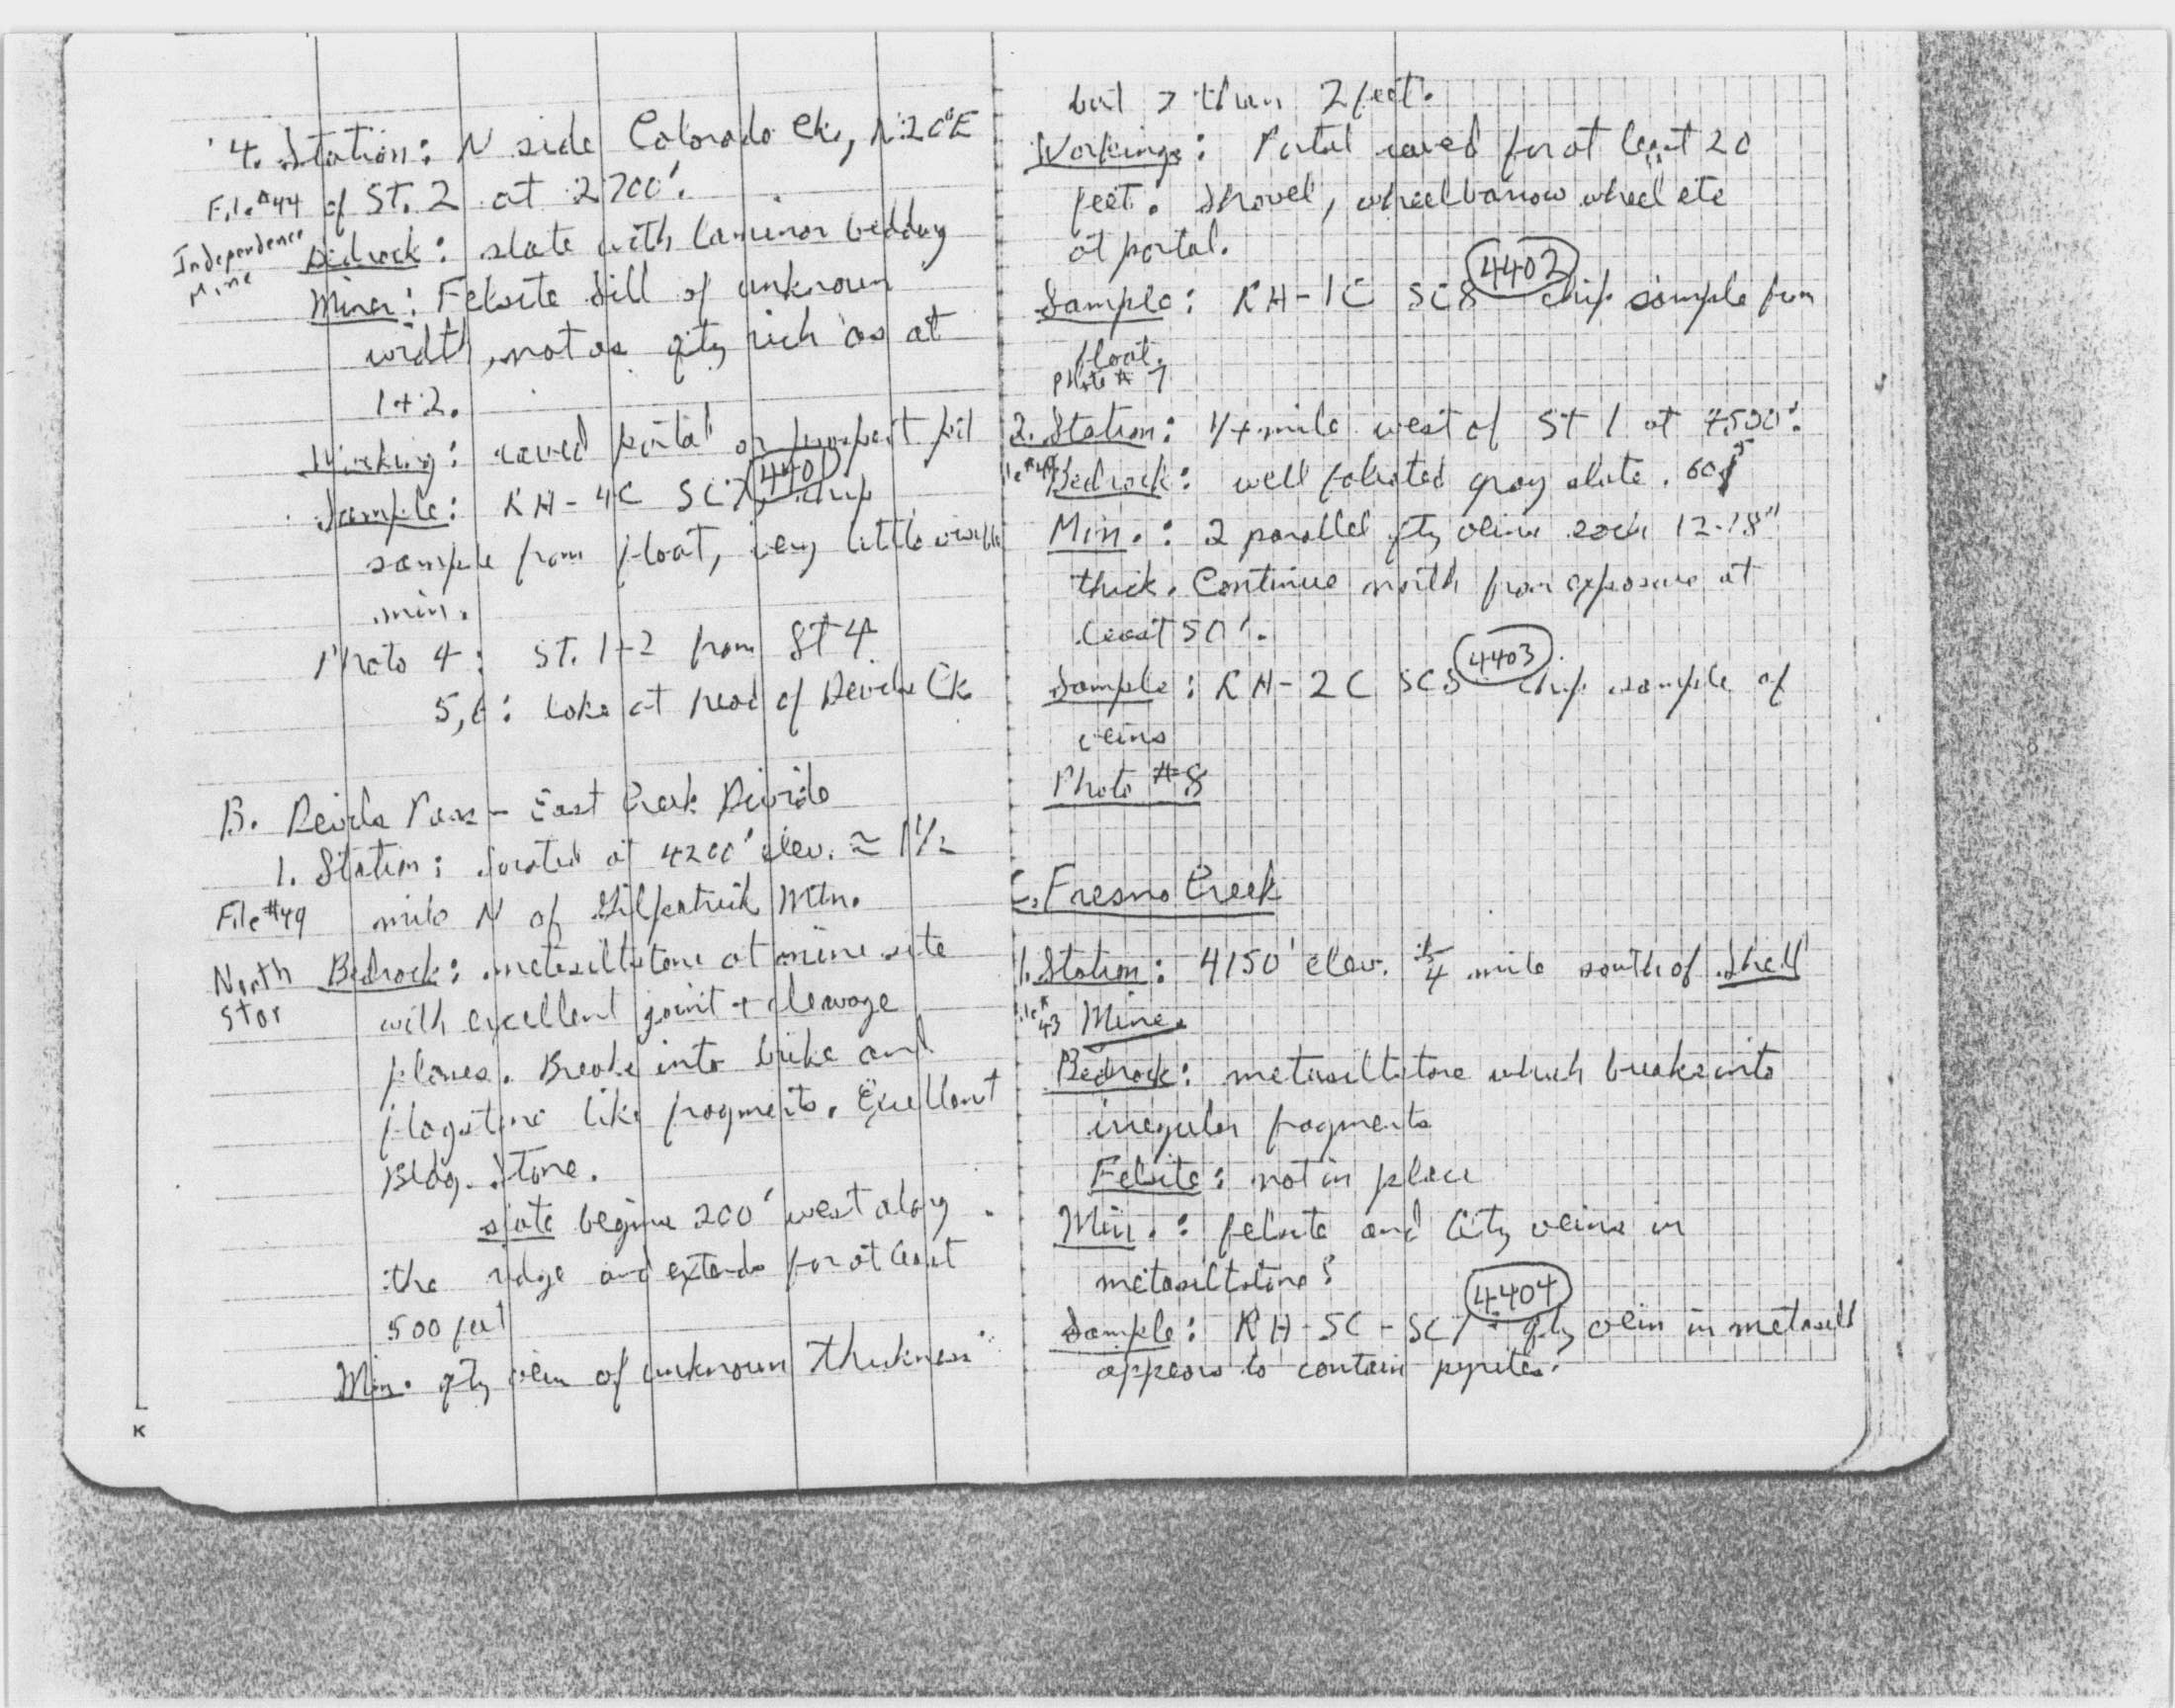 4. Station: N side Colorado Ck, N20°E
File #44 of ST. 2 at 2700'.
Independence Mine
Bedrock: slate with laminar bedding
Miner: Felsite sill of unknown
width, not as qtz rich as at
1+2.
Working: caved portal or prospect pit
4401
Sample: RH-4C chip
sample from float, very little visible
min.
Photo 4: ST. 1+2 from ST 4
5,6: lake at head of Devils Ck
B. Devils Pass - East Creek Divide
1. Station: located at 4200' elev. ≈ 1 1/2
File #49 mile N of Gilpatrick Mtn.
North Star
Bedrock: metasiltstone at mine site
with excellent joint + cleavage
planes. Breaks into brike and
flagstone like fragments. Excellent
Bldg. Stone.
slate begins 200' west along
the ridge and extends for at least
500 feet
Min. qtz vein of unknown thickness
but > than 2 feet.
Workings: Portal caved for at least 20
feet. Shovel, wheelbarrow wheel etc
at portal.
4402
Sample: RH-1C SC8 chip sample from
float.
Photo # 7
2. Station: 1/4 mile west of ST 1 at 4500'.
Bedrock: well foliated gray slate.
Min.: 2 parallel qtz veins each 12-18"
thick. Continue north from exposure at
least 50'.
4403
Sample: RH-2C SC8 chip sample of
veins
Photo #8
C. Fresno Creek
1. Station: 4150' elev. 1/4 mile south of Shell
43 Mine.
Bedrock: metasiltstone which breaks into
irregular fragments
Felsite: not in place
Min.: felsite and qtz veins in
metasiltstone?
4404
Sample: RH-5C-SC7 qtz vein in metasilt
appears to contain pyrites.